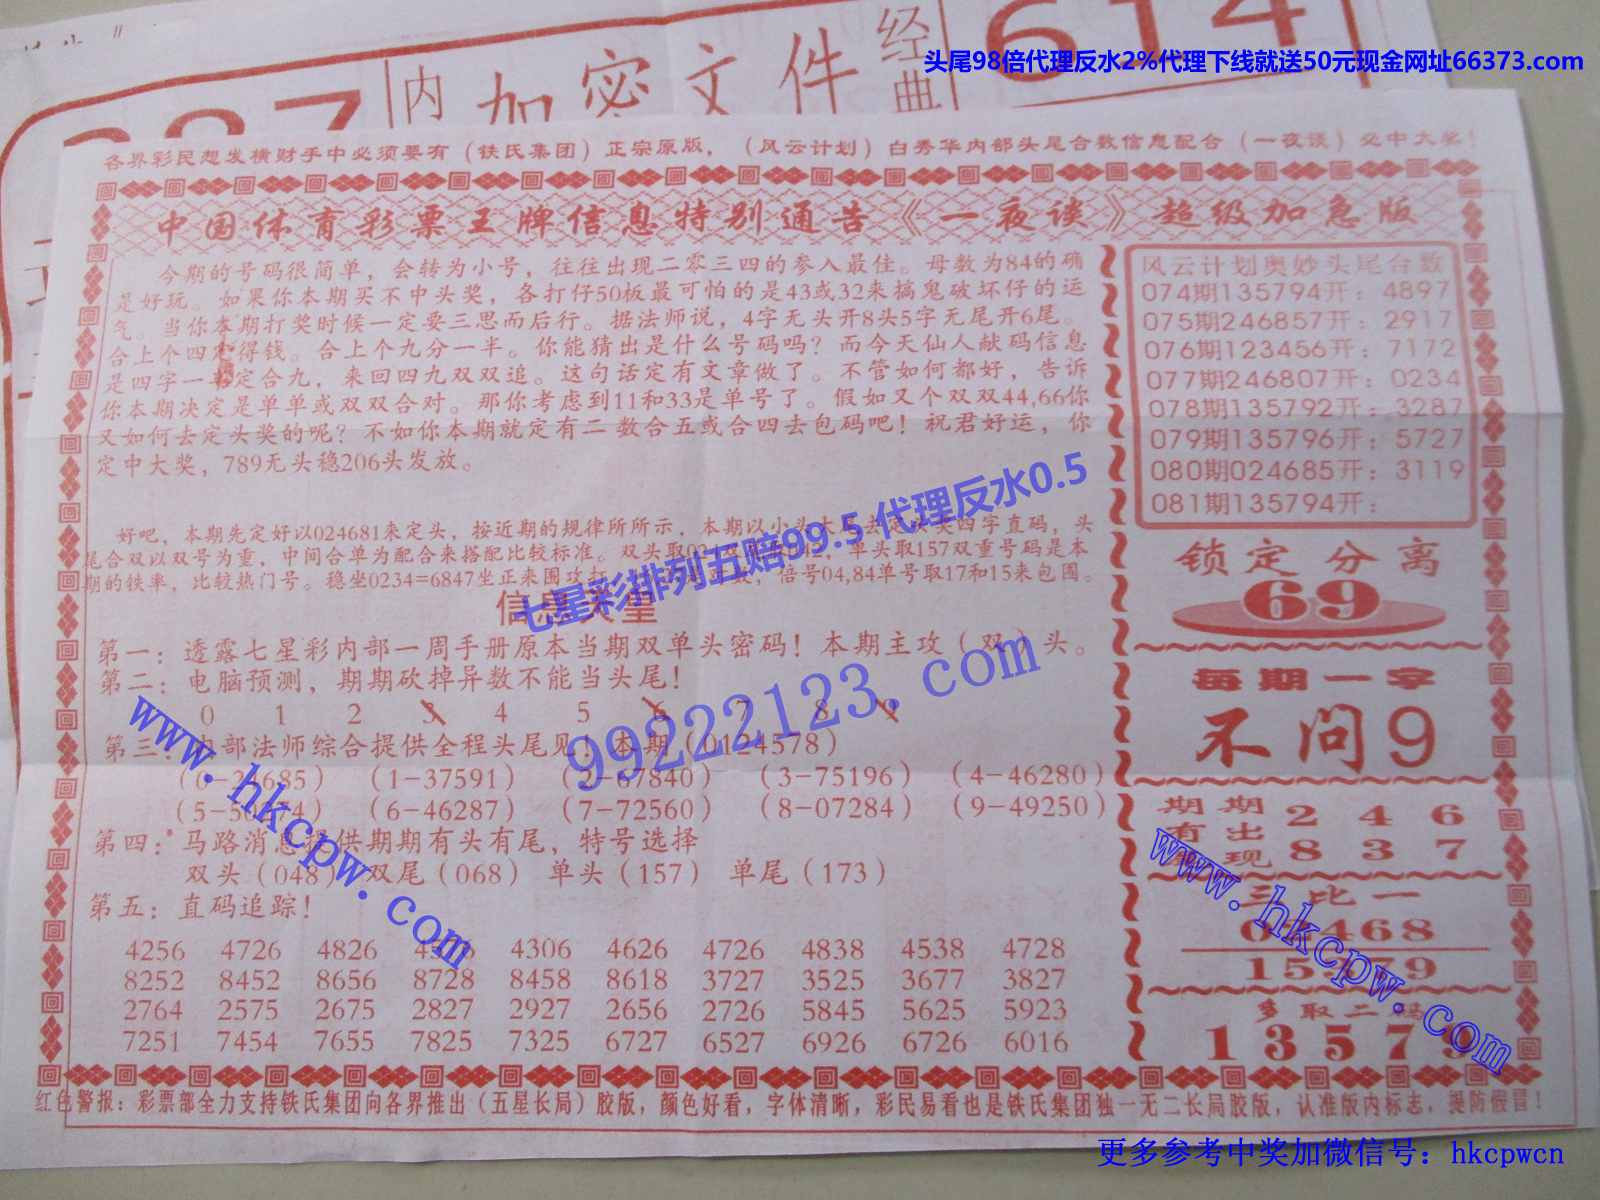 内
加密文件
经典
614
头尾98倍代理反水2%代理下线就送50元现金网址66373.com
各界彩民想发横财手中必须要有（铁氏集团）正宗原版，（风云计划）白秀华内部头尾合数信息配合（一夜谈）必中大奖！
中国体育彩票王牌信息特别通告《一夜谈》超级加急版
今期的号码很简单，会转为小号，往往出现二零三四的参入最佳。母数为84的确
是好玩。如果你本期买不中头奖，各打仔50板最可怕的是43或32来搞鬼破坏仔的运
气。当你本期打奖时候一定要三思而后行。据法师说，4字无头开8头5字无尾开6尾。
合上个四定得钱。合上个九分一半。你能猜出是什么号码吗？而今天仙人献码信息
是四字一定合九，来回四九双双追。这句话定有文章做了。不管如何都好，告诉
你本期决定是单单或双双合对。那你考虑到11和33是单号了。假如又个双双44,66你
又如何去定头奖的呢？不如你本期就定有二数合五或合四去包码吧！祝君好运，你
定中大奖，789无头稳206头发放。
好吧，本期先定好以024681来定头，按近期的规律所所示，本期以小头大尾去定头奖四字直码，头
尾合双以双号为重，中间合单为配合来搭配比较标准。双头取 单头取157双重号码是本
期的铁率，比较热门号。稳坐0234=6847坐正来围攻打 倍号04,84单号取17和15来包围。
七星彩排列五赔99.5 代理反水0.5
信息
第一：透露七星彩内部一周手册原本当期双单头密码！本期主攻（双）头。
第二：电脑预测，期期砍掉异数不能当头尾！
0 1 2 3 4 5 6 7 8 9
第三：内部法师综合提供全程头尾见！本期（0124578）
（0-24685）（1-37591）（2-67840）（3-75196）（4-46280）
（6-46287）（7-72560）（8-07284）（9-49250）
第四：马路消息提供期期有头有尾，特号选择
双头（048）双尾（068）单头（157）单尾（173）
第五：直码追踪！
4256 4726 4826 4306 4626 4726 4838 4538 4728
8252 8452 8656 8728 8458 8618 3727 3525 3677 3827
2764 2575 2675 2827 2927 2656 2726 5845 5625 5923
7251 7454 7655 7825 7325 6727 6527 6926 6726 6016
99222123.com
www.hkcpw.com
风云计划奥妙头尾合数
074期135794开：4897
075期246857开：2917
076期123456开：7172
077期246807开：0234
078期135792开：3287
079期135796开：5727
080期024685开：3119
081期135794开：
锁定分离
69
每期一字
不问9
期期 2 4 6
有出
现 8 3 7
三比一
多取二码
13579
www.hkcpw.com
红色警报：彩票部全力支持铁氏集团向各界推出（五星长局）胶版，颜色好看，字体清晰，彩民易看也是铁氏集团独一无二长局胶版，认准版内标志，提防假冒！
更多参考中奖加微信号：hkcpwcn